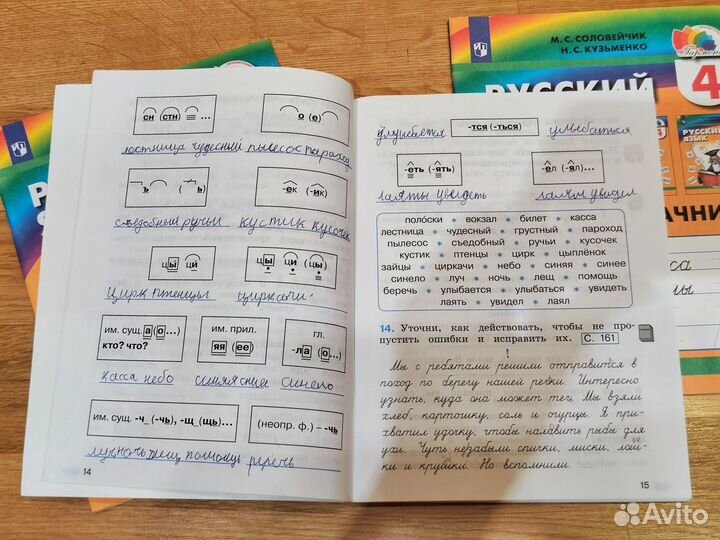 М. С. СОЛОВЕЙЧИК
Н. С. КУЗЬМЕНКО
Гармония
РУССКИЙ
4
сн (стн) = ...
о (е)
лостница чудесный пылесос пароход
ъ ( ь)
-ек (-ик)
съедобный ручьи кустик кусочек
цы ци
(цы ци цы)...
Цирк птенцы циркачи
им. сущ. а (о...)
кто? что?
им. прил.
яя (ее)
гл.
-ла (о...)
касса небо синяя синее синело
им. сущ. -ч_ (-чь), -щ_(щь)...
(неопр. ф.) – -чь
луч ночь лещ помощь беречь
14
улыбается
-тся (-ться)
улыбаться
-еть (-ять)
-ел (-ял)...
лаять увидеть лаял увидел
полоски * вокзал * билет * касса
лестница * чудесный * грустный * пароход
пылесос * съедобный * ручьи * кусочек
кустик * птенцы * цирк * цыплёнок
зайцы * циркачи * небо * синяя * синее
синело * луч * ночь * лещ * помощь
беречь * улыбается * улыбаться * увидеть
лаять * увидел * лаял
14. Уточни, как действовать, чтобы не про-
пустить ошибки и исправить их. С. 161
!
Мы с ребятами решили отправится в
поход по берегу нашей речки. Интересно
узнать, куда она может теч. Мы взяли
хлеб, картошку, соль и огурцы. Я при-
хватил удочку, чтобы налавить рыбы для
ухи. Чуть незабыли спички, миски, лож-
ки и кружки. Но вспомнили.
15
РУССКИЙ
ЯЗЫК
Avito